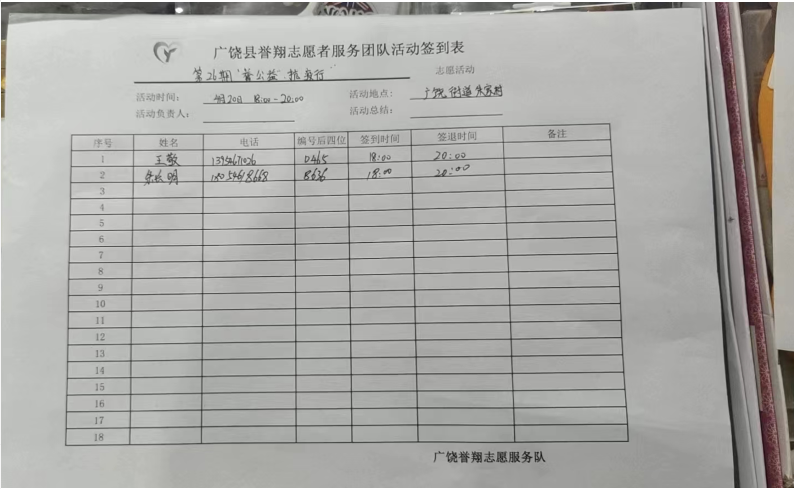 广饶县誉翔志愿者服务团队活动签到表
第26期"誉公益" 行" 志愿活动
活动时间: 4月20日 18:00-20:00 活动地点: 广饶街道 朱家村
活动负责人: 活动总结:
序号 姓名 电话 编号后四位 签到时间 签退时间 备注
1 王敬 0465 18:00 20:00
2 明 8636 18:00 20:00
3
4
5
6
7
8
9
10
11
12
13
14
15
16
17
18
广饶誉翔志愿服务队